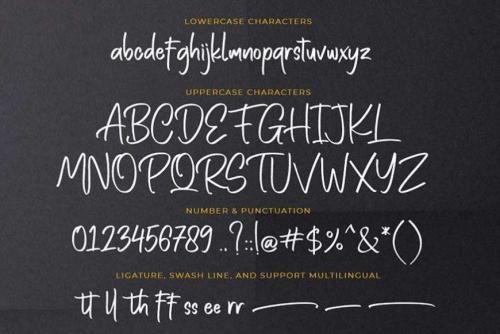 LOWERCASE CHARACTERS
abcdefghijklmnopqrstuvwxyz
UPPERCASE CHARACTERS
ABCDEFGHIJKL
MNOPQRSTUVWXYZ
NUMBER & PUNCTUATION
0123456789 ..?::!@#$%^&*()
LIGATURE, SWASH LINE, AND SUPPORT MULTILINGUAL
tt ll th ff ss ee rr